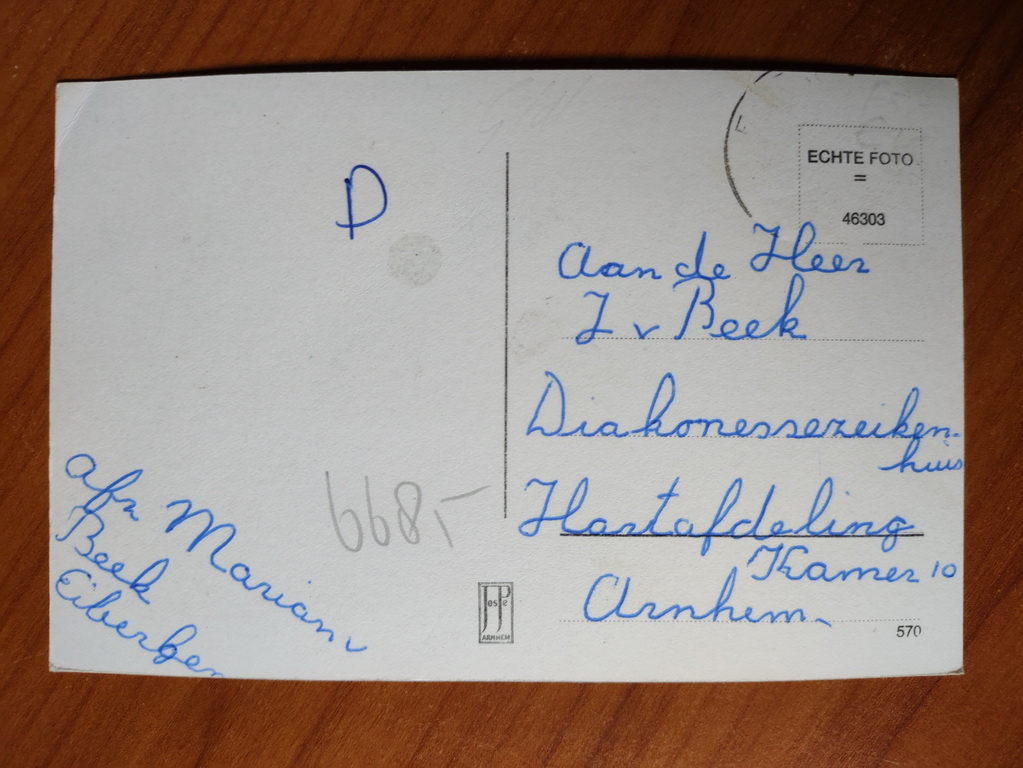 D
ECHTE FOTO
=
46303
Aan de Heer
J v Beek
Diakonessezeiken-
huis
Hartafdeling
Kamer 10
Arnhem.
570
Afz Marian
Beek
Eibergen
6685-
JosPé
ARNHEM